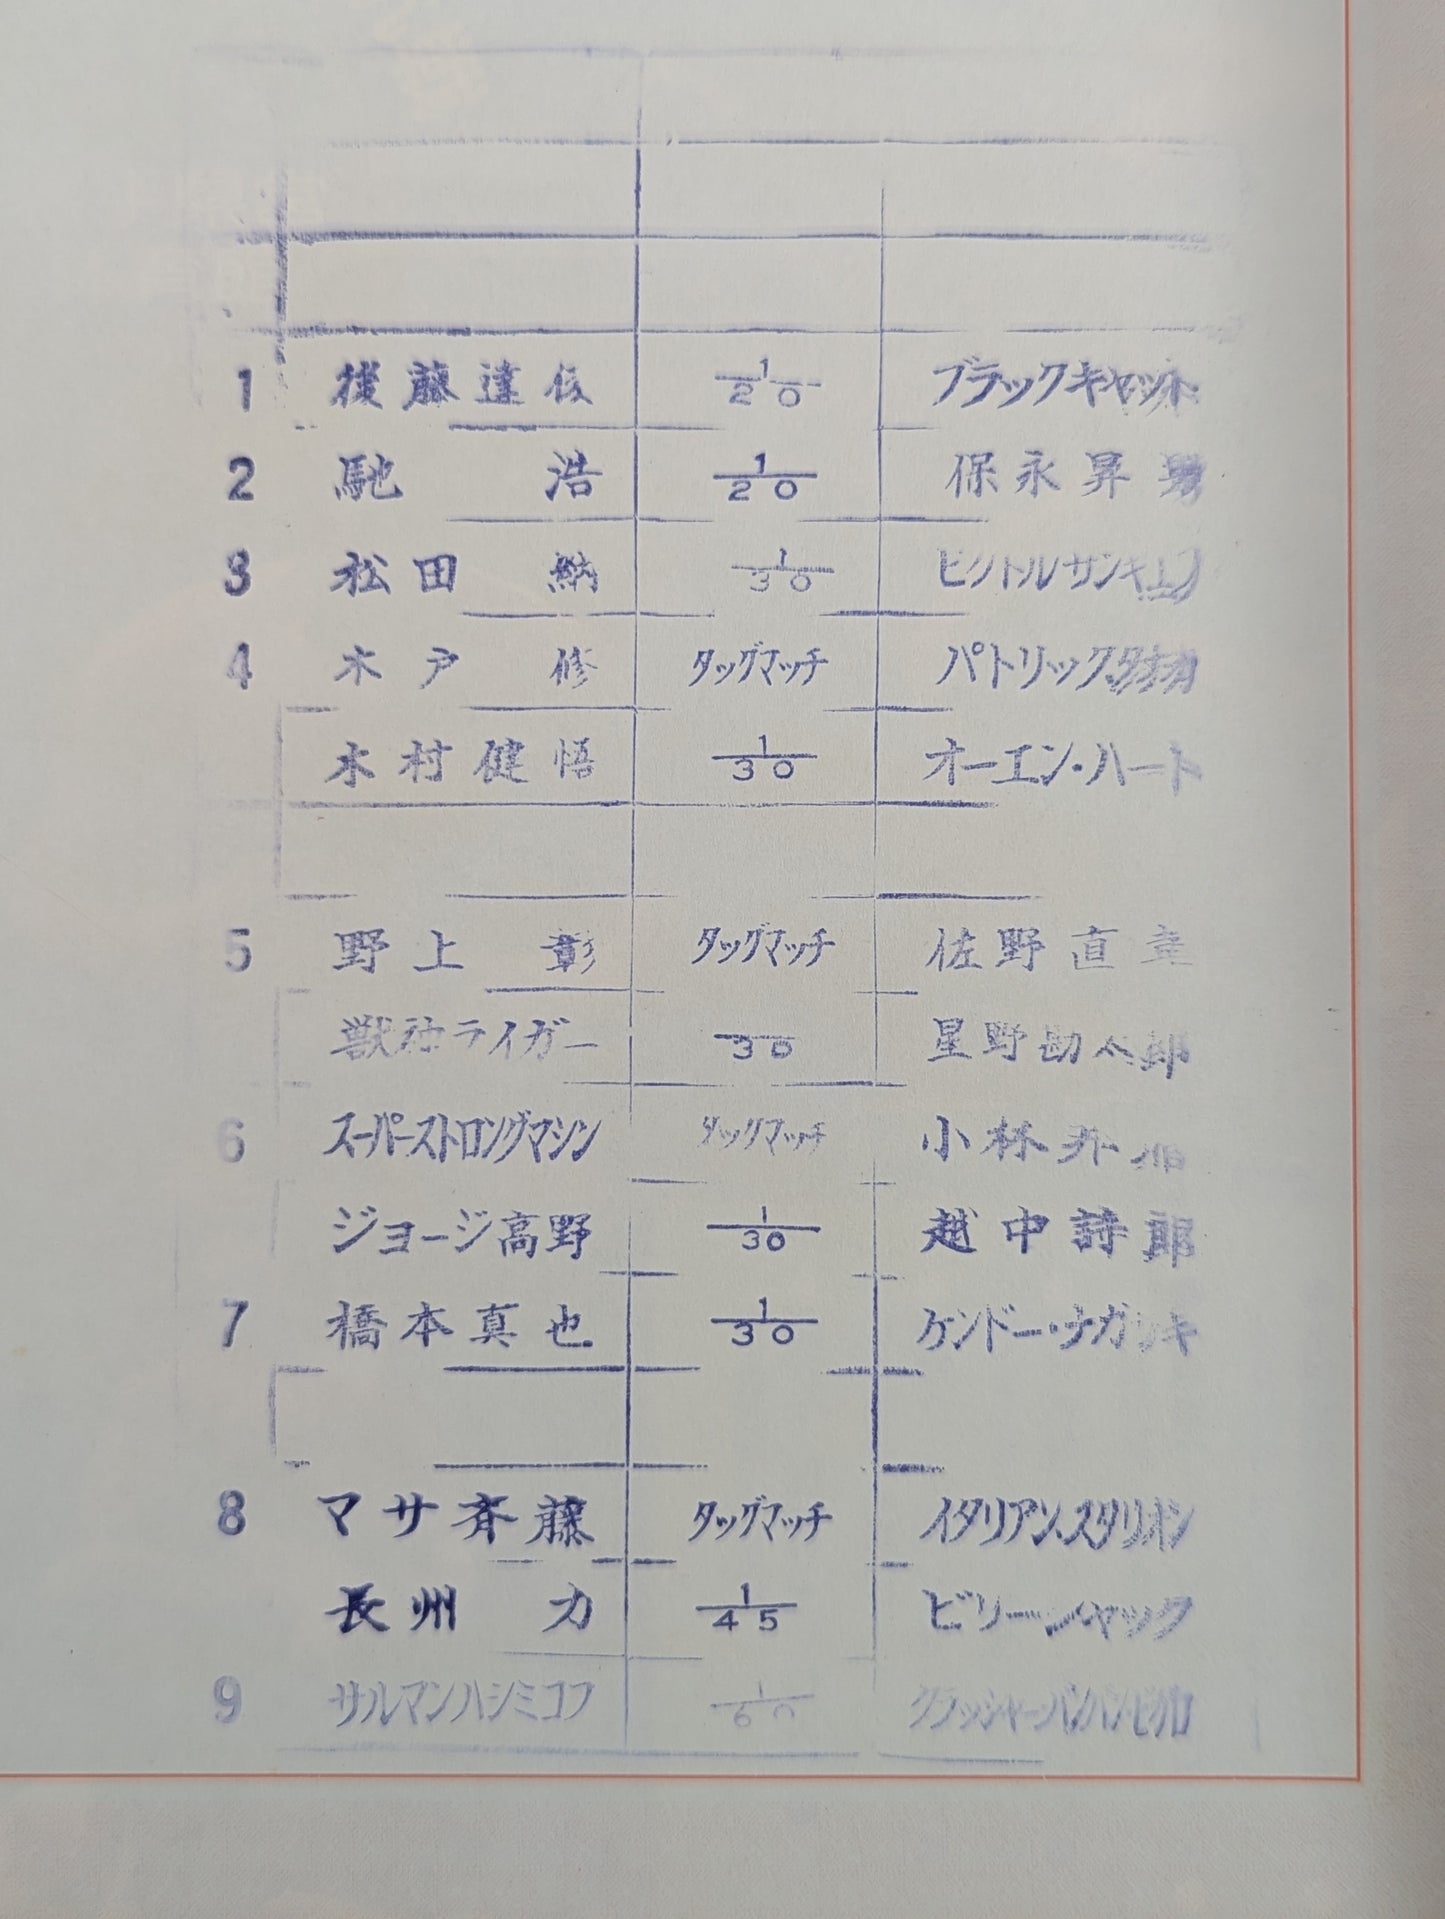 1 後藤達俊 1/20 ブラックキャット
2 馳 浩 1/20 保永昇男
3 松田 納 1/30 ビクトルザンギエフ
4 木戸 修 タッグマッチ パトリックタナカ
木村健悟 1/30 オーエン・ハート
5 野上 彰 タッグマッチ 佐野直喜
獣神ライガー 30 星野勘太郎
6 スーパーストロングマシン タッグマッチ 小林邦昭
ジョージ高野 1/30 越中詩郎
7 橋本真也 1/30 ケンドー・ナガサキ
8 マサ斉藤 タッグマッチ イタリアンスタリオン
長州 力 1/45 ビリージャック
9 サルマンハシミコフ 1/60 クラッシャーバンバンビガロ